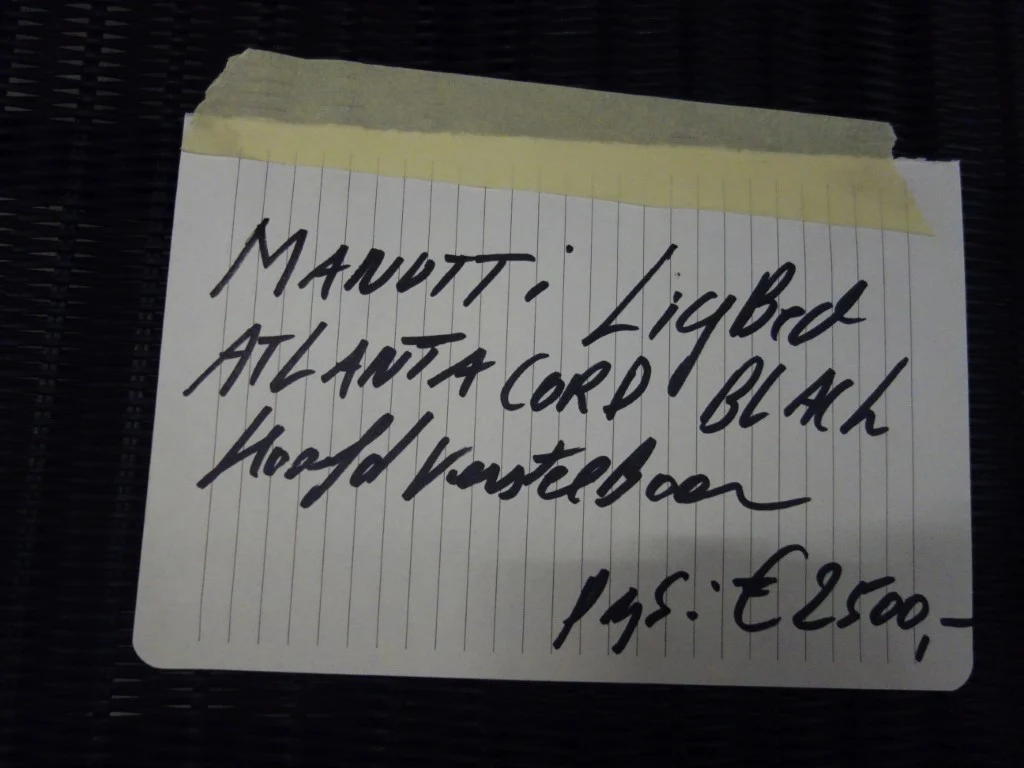 MANUTTi LigBed
ATLANTA CORD BLACK
Hoofd VerstelBaar
prijs: € 2500,-